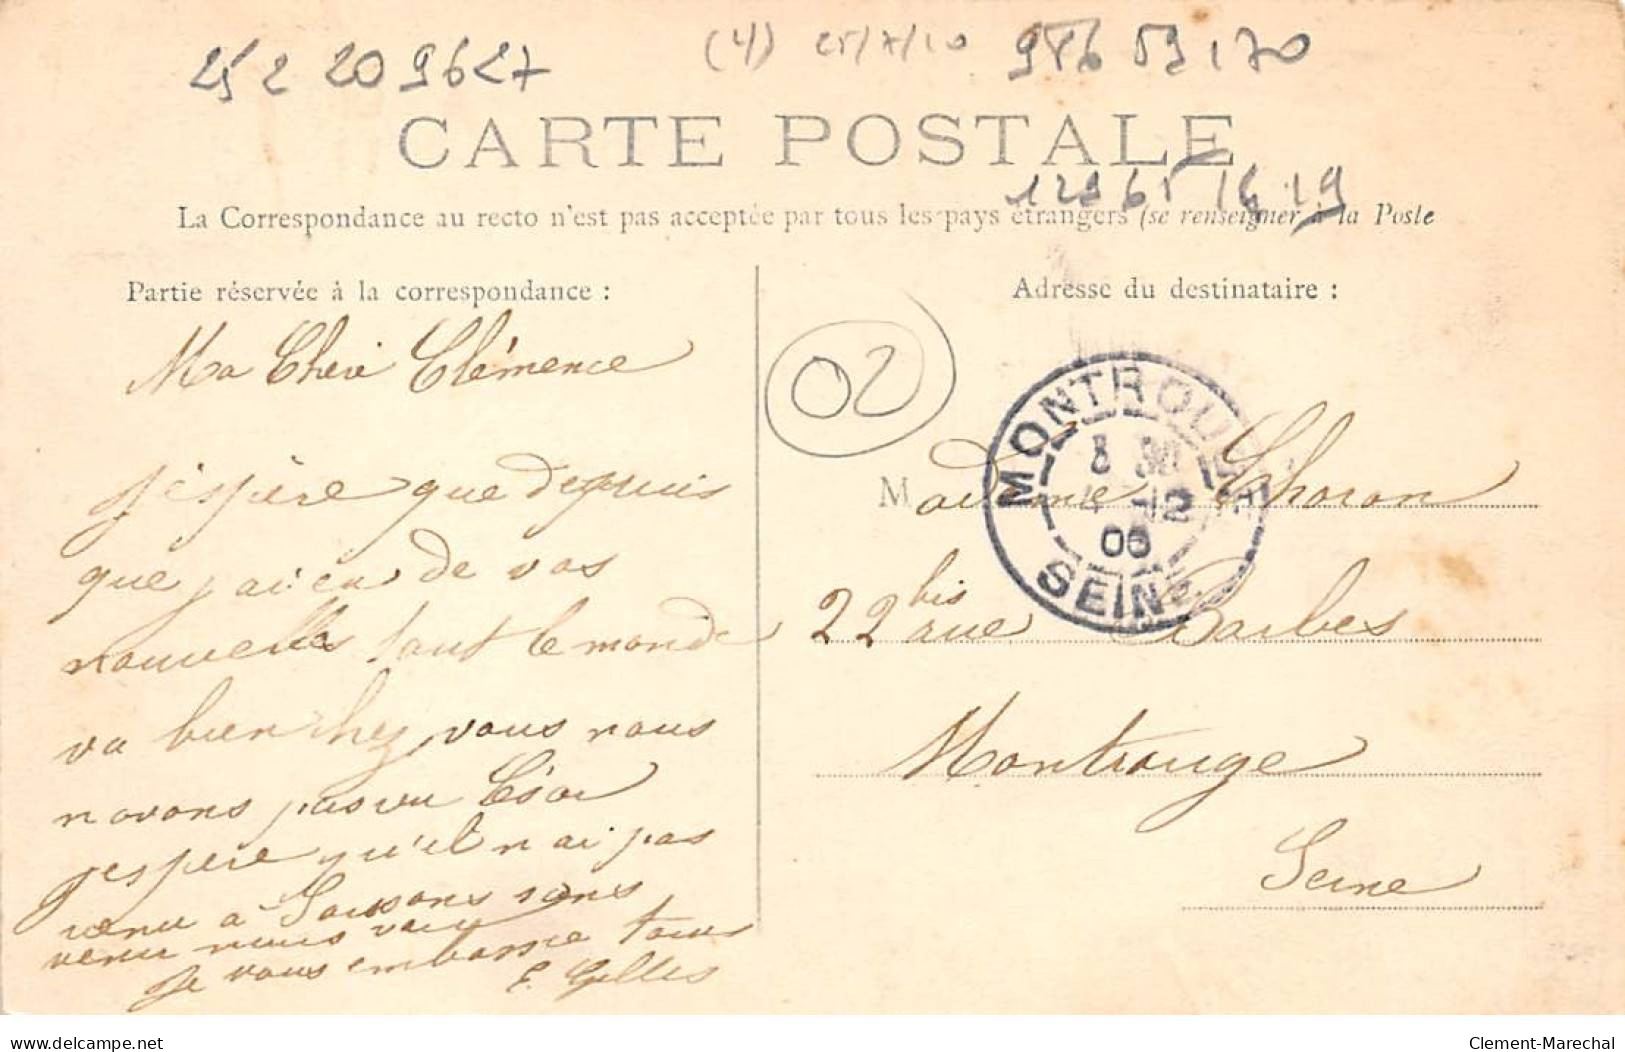 252 209627
(4) 25/7/10
CARTE POSTALE
La Correspondance au recto n'est pas acceptée par tous les pays étrangers (se renseigner à la Poste
Partie réservée à la correspondance :
Ma Cheri Clémence
j'espère que depuis
que j'ai eu de vos
nouvelles tout le monde
va bien chez vous nous
navons pas vu César
jespere qu'il n ai pas
venu a Soissons sans
venir nous voir
Je vous embrasse tous
E. Gilles
02
Adresse du destinataire :
MONTROUGE
8 30
4 -12
06
SEINE
Madame Choron
22 bis rue Barbes
Montrouge
Seine
delcampe.net
Clement-Marechal